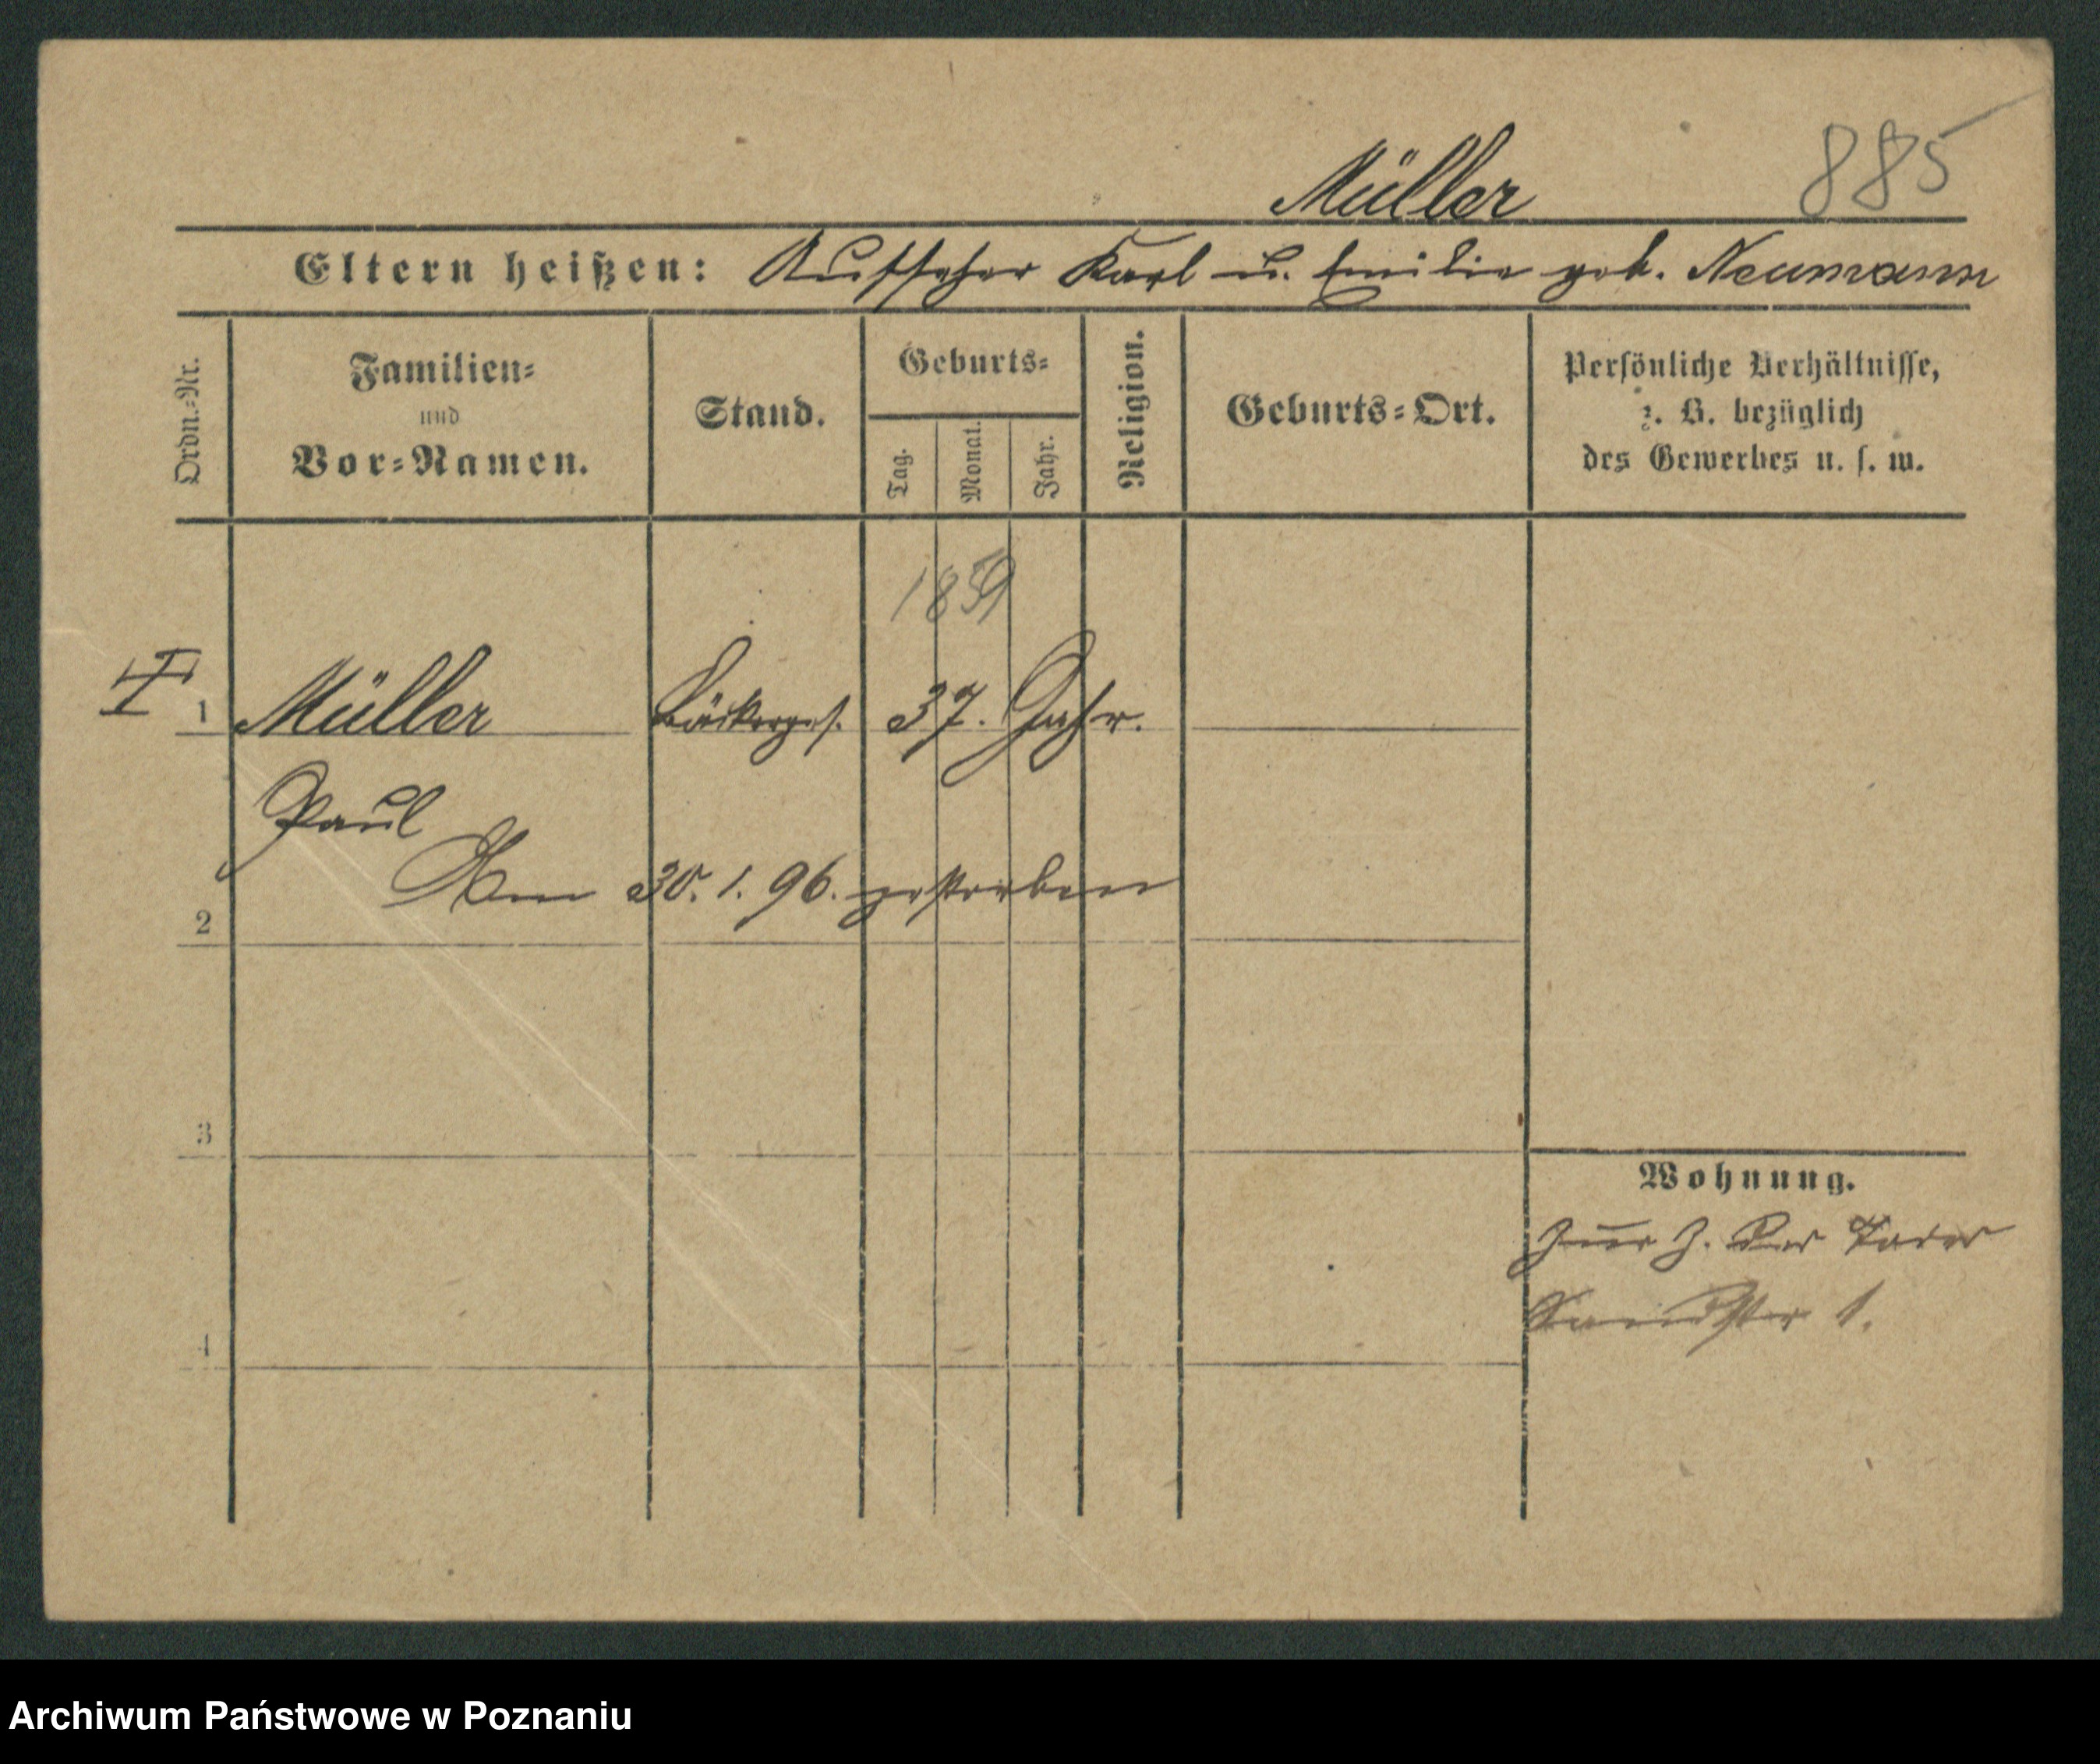 Müller 885
Eltern heißen: Aufseher Karl u. Emilie geb. Neumann
Ordn.-Nr.
Familien-
und
Vor-Namen.
Stand.
Geburts-
Tag.
Monat.
Jahr.
Religion.
Geburts-Ort.
Persönliche Verhältnisse,
z. B. bezüglich
des Gewerbes u. s. w.
1859
1 Müller Bäckerges. 37. Jahr.
Paul
Am 30. 1. 96. gestorben
2
3
4
Wohnung.
zur Z. des Todes
Sandstr 1.
Archiwum Państwowe w Poznaniu